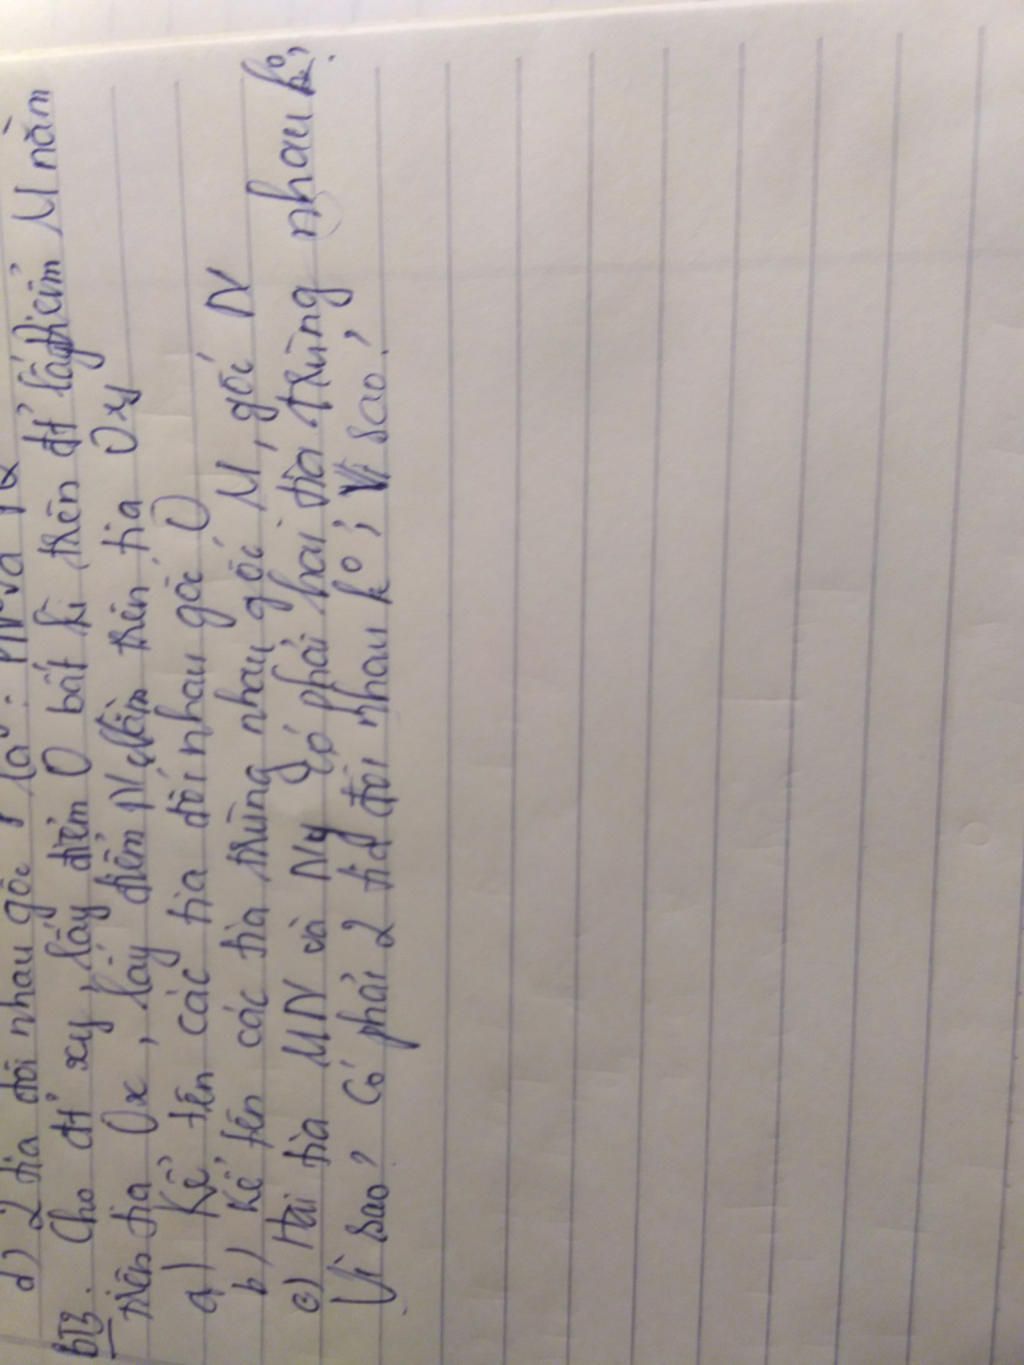 d) 2 tia đối nhau gốc P là: PN và PQ
BT3. Cho đt' xy, lấy điểm O bất kì trên đt' lấy điểm M nằm
trên tia Ox, lấy điểm N nằm trên tia Oy
a) Kể tên các tia đối nhau gốc O
b) Kể tên các tia trùng nhau gốc M, gốc N
c) Hai tia MN và Ny có phải hai tia trùng nhau ko?
Vì sao? Có phải 2 tia đối nhau ko; Vì sao?